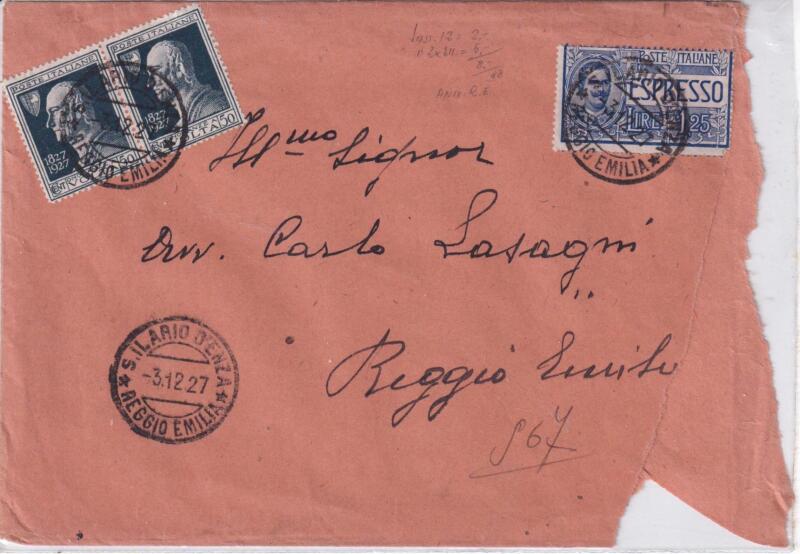 POSTE ITALIANE
1827
1927
POSTE ITALIANE
1827
1927
50
50
REGGIO EMILIA
POSTE ITALIANE
ESPRESSO
LIRE 1,25
REGGIO EMILIA
Ill.mo Signor
Avv. Carlo Lasagni
Reggio Emilia
S. ILARIO D'ENZA
-3.12.27
★ REGGIO EMILIA ★